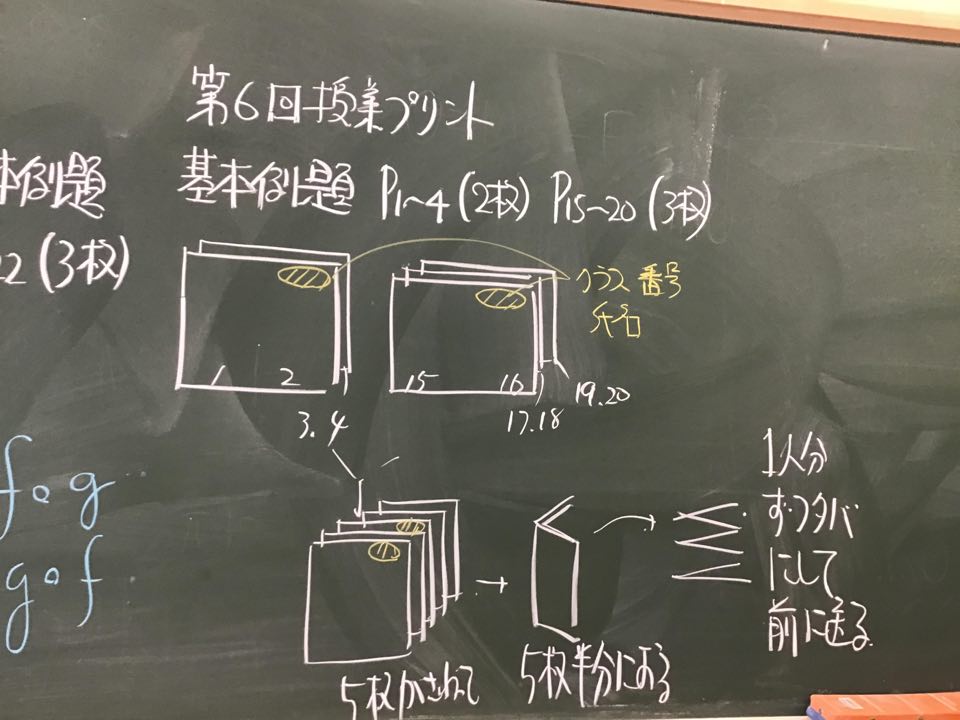 第6回授業プリント
本例題
基本例題 P1~4(2枚) P15~20(3枚)
22(3枚)
クラス 番号
氏名
1 2
3.4
15 16
17.18
19.20
f∘g
g∘f
1人分
ずつタバ
にして
前に送る
5枚かさねて
5枚半分におる